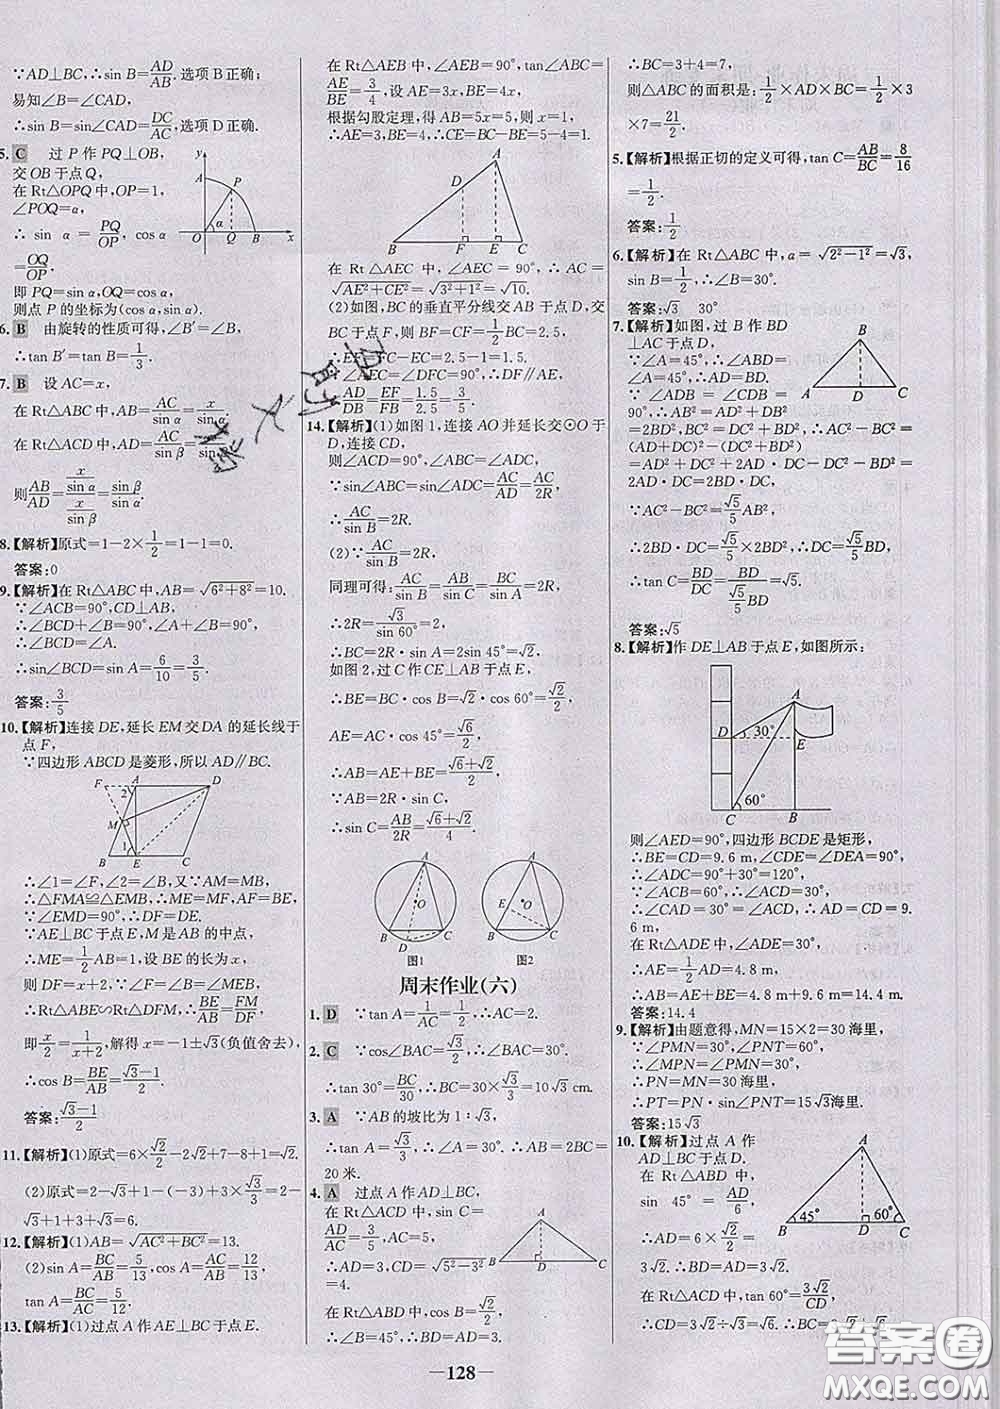 ∵AD⊥BC,∴sin B=AD/AB.选项B正确;
易知∠B=∠CAD,
∴sin B=sin∠CAD=DC/AC,选项D正确.
5. C 过 P 作 PQ⊥OB,
交 OB 于点 Q,
在 Rt△OPQ 中,OP=1,
∠POQ=α,
∴ sin α=PQ/OP, cos α
=OQ/OP.
即 PQ=sin α,OQ=cos α,
则点 P 的坐标为(cos α,sin α).
A P O α Q B x y
6. B 由旋转的性质可得,∠B′=∠B,
∴tan B′=tan B=1/3.
7. B 设 AC=x,
在 Rt△ABC 中,AB=AC/sin α=x/sin α.
在 Rt△ACD 中,AD=AC/sin β=x/sin β
则AB/AD=(x/sin α)/(x/sin β)=sin β/sin α.
8.【解析】原式=1-2×1/2=1-1=0.
答案:0
9.【解析】在 Rt△ABC 中,AB=√(6²+8²)=10.
∵∠ACB=90°,CD⊥AB,
∴∠BCD+∠B=90°,∠A+∠B=90°,
∴∠BCD=∠A.
∴sin∠BCD=sin A=6/10=3/5.
答案:3/5
10.【解析】连接 DE,延长 EM 交 DA 的延长线于
点 F,
∵四边形 ABCD 是菱形,所以 AD∥BC.
F A D 2 M 1 B E C
∴∠1=∠F,∠2=∠B,又∵AM=MB,
∴△FMA≌△EMB,∴ME=MF,AF=BE,
∵∠EMD=90°,∴DF=DE.
∵AE⊥BC于点E,M是AB的中点,
∴ME=1/2AB=1.设 BE=x,
则 DF=x+2,∠B=∠F=∠MEB,
∴Rt△ABE∽Rt△DFM,∴BE/AB=FM/DF,
即x/2=1/(x+2),解得 x=-1±√3(负值舍去),
∴cos B=BE/AB=(√3-1)/2.
答案:(√3-1)/2
11.【解析】(1)原式=6×√2/2-2√2+7-8+1=√2.
(2)原式=2-√3+1-(-3)+3×√3/3=2-
√3+1+3+√3=6.
12.【解析】(1)AB=√(AC²+BC²)=13.
(2)sin A=BC/AB=5/13,cos A=AC/AB=12/13
tan A=BC/AC=5/12.
13.【解析】(1)过点 A 作 AE⊥BC 于点 E.
在 Rt△AEB 中,∠AEB=90°,tan∠ABC=
AE/BE=3/4,设 AE=3x,BE=4x,
根据勾股定理,得 AB=5x=5,则 x=1,
∴AE=3,BE=4,∴CE=BC-BE=5-4=1.
A D B F E C
在 Rt △AEC 中,∠AEC = 90°,∴ AC =
√(AE²+CE²)=√(3²+1²)=√10.
(2)如图,BC 的垂直平分线交 AB 于点 D,交
BC于点 F,则 BF=CF=1/2BC=2.5,
FC-EC=2.5-1=1.5.
∠AEC=∠DFC=90°,∴DF∥AE.
AD/DB=EF/FB=1.5/2.5=3/5.
14.【解析】(1)如图 1,连接 AO 并延长交⊙O 于
D,连接 CD,
则∠ACD=90°,∠ABC=∠ADC,
∵sin∠ABC=sin∠ADC=AC/AD=AC/2R,
∴AC/sin B=2R.
(2)∵AC/sin B=2R,
同理可得:AC/sin B=AB/sin C=BC/sin A=2R,
∴2R=√3/sin 60°=2,
∴BC=2R·sin A=2sin 45°=√2,
如图 2,过 C 作 CE⊥AB 于点 E,
∴BE=BC·cos B=√2·cos 60°=√2/2,
AE=AC·cos 45°=√6/2,
∴AB=AE+BE=(√6+√2)/2,
∵AB=2R·sin C,
∴sin C=AB/2R=(√6+√2)/4.
A O B D C 图1
A E O B C 图2
周末作业(六)
1. D ∵tan A=1/AC=1/2,∴AC=2.
2. C ∵cos∠BAC=√3/2,∴∠BAC=30°.
∴tan 30°=BC/30,∴BC=30×√3/3=10√3 cm.
3. A ∵AB 的坡比为 1∶√3,
∴tan A=√3/3,∴∠A=30°.∴AB=2BC=
20 米.
4. A 过点 A 作 AD⊥BC,
在 Rt△ACD 中,sin C=
AD/AC=3/5,
∴AD=3,CD=√(5²-3²)
=4.
A B D C
在 Rt△ABD 中,cos B=√2/2,
∴∠B=45°,∴BD=AD=3.
∴BC=3+4=7,
则△ABC 的面积是:1/2×AD×BC=1/2×3
×7=21/2.
5.【解析】根据正切的定义可得,tan C=AB/BC=8/16
=1/2.
答案:1/2
6.【解析】在 Rt△ABC 中,a=√(2²-1²)=√3,
sin B=1/2,∴∠B=30°.
答案:√3 30°
7.【解析】如图,过 B 作 BD
⊥AC 于点 D.
∵∠A=45°,∴∠ABD=
∠A=45°,∴AD=BD.
∵ ∠ADB = ∠CDB =
90°,∴AB²=AD²+BD²
=2BD²,BC²=DC²+BD²,∴AC²-BC²=
(AD+DC)²-(DC²+BD²)
=AD²+DC²+2AD·DC-DC²-BD²=
2AD·DC=2BD·DC,
∵AC²-BC²=√5/5AB²,
∴2BD·DC=√5/5×2BD²,∴DC=√5/5BD,
∴tan C=BD/DC=BD/(√5/5BD)=√5.
答案:√5
B A D C
8.【解析】作 DE⊥AB 于点 E,如图所示:
A D 30° E 60° C B
则∠AED=90°,四边形 BCDE 是矩形,
∴BE=CD=9.6 m,∠CDE=∠DEA=90°,
∴∠ADC=90°+30°=120°,
∵∠ACB=60°,∴∠ACD=30°,
∴∠CAD=30°=∠ACD,∴AD=CD=9.
6 m,
在 Rt△ADE 中,∠ADE=30°,
∴AE=1/2AD=4.8 m,
∴AB=AE+BE=4.8 m+9.6 m=14.4 m.
答案:14.4
9.【解析】由题意得,MN=15×2=30 海里,
∵∠PMN=30°,∠PNT=60°,
∴∠MPN=∠PMN=30°,
∴PN=MN=30 海里,
∴PT=PN·sin∠PNT=15√3 海里.
答案:15√3
10.【解析】过点 A 作
AD⊥BC于点 D.
在 Rt △ABD 中,
sin 45°=AD/AB=
AD/6,
∴AD=6×√2/2=
3√2.∴AD=3√2,
A 45° 60° B D C
在 Rt△ACD 中,tan 60°=AD/CD,∴√3=
3√2/CD,
∴CD=3√2÷√3=√6.
∵BD=AD=3√2,∴BC=3√2+√6.
—128—
答案圈
MXQE.COM